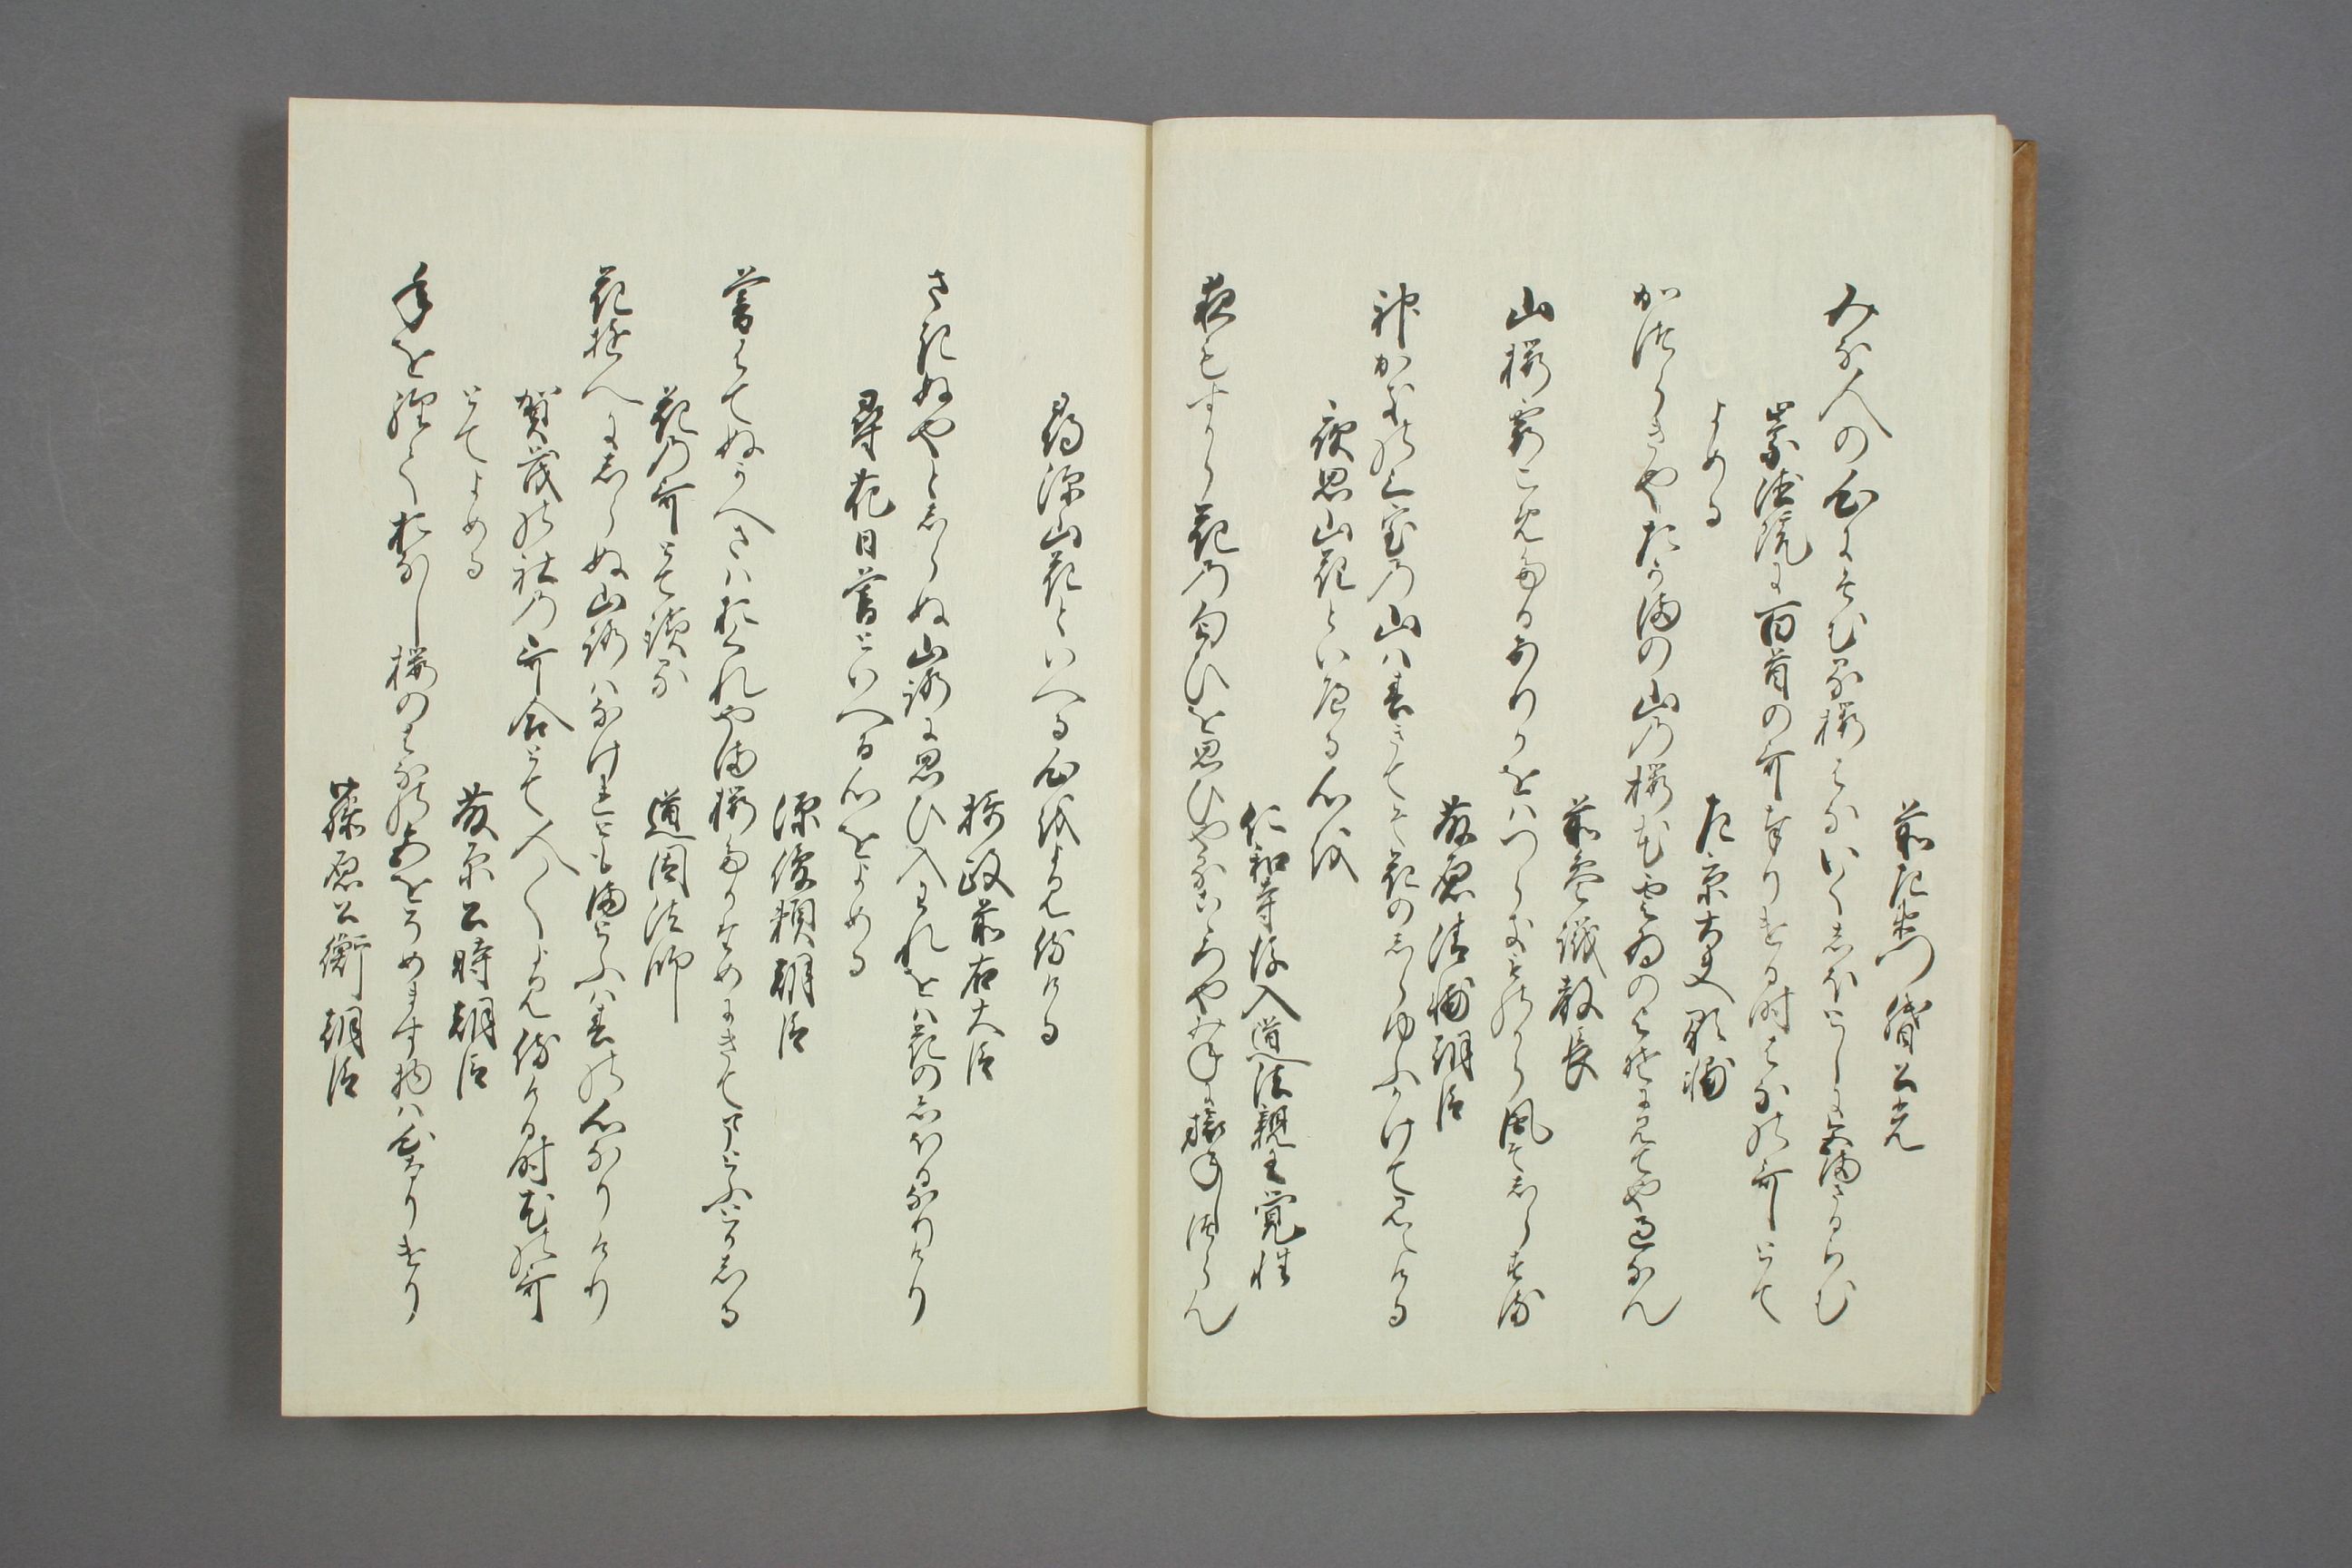 前左衛門督公光
みな人の心にそむる桜はないくしほとしに色まさるらむ
崇徳院に百首の哥奉りける時はなの哥とて
よめる
左京大夫顕輔
かつらきやたかまの山の桜花雲ゐのよそにみてや過なん
前参議教長
山桜霞こめたるありかをはつらきものから風そしらする
藤原清輔朝臣
神かきの三室の山は春きてそ花のしらゆふかけて見えける
夜思山花といへる心を
仁和寺後入道法親王覚性
夜もすから花の匂ひを思ひやる心やみねに旅ねしつらん
尋深山花といへる心をよみ侍ける
摂政前右大臣
さきぬやとしらぬ山路に思ひ入われをは花のしほるなりけり
尋花日暮といへる心をよめる
源俊頼朝臣
暮はてぬかへさはおくれやま桜たかためにきてまとふとかしる
花の哥とて読る
道因法師
花ゆへにしらぬ山路はなけれともまとふは春の心なりけり
賀茂の社の哥合とて人〳〵よみ侍ける時花の哥
とてよめる
藤原公時朝臣
年をへておなし桜のはなの色をそめます物は心なりけり
藤原公衡朝臣